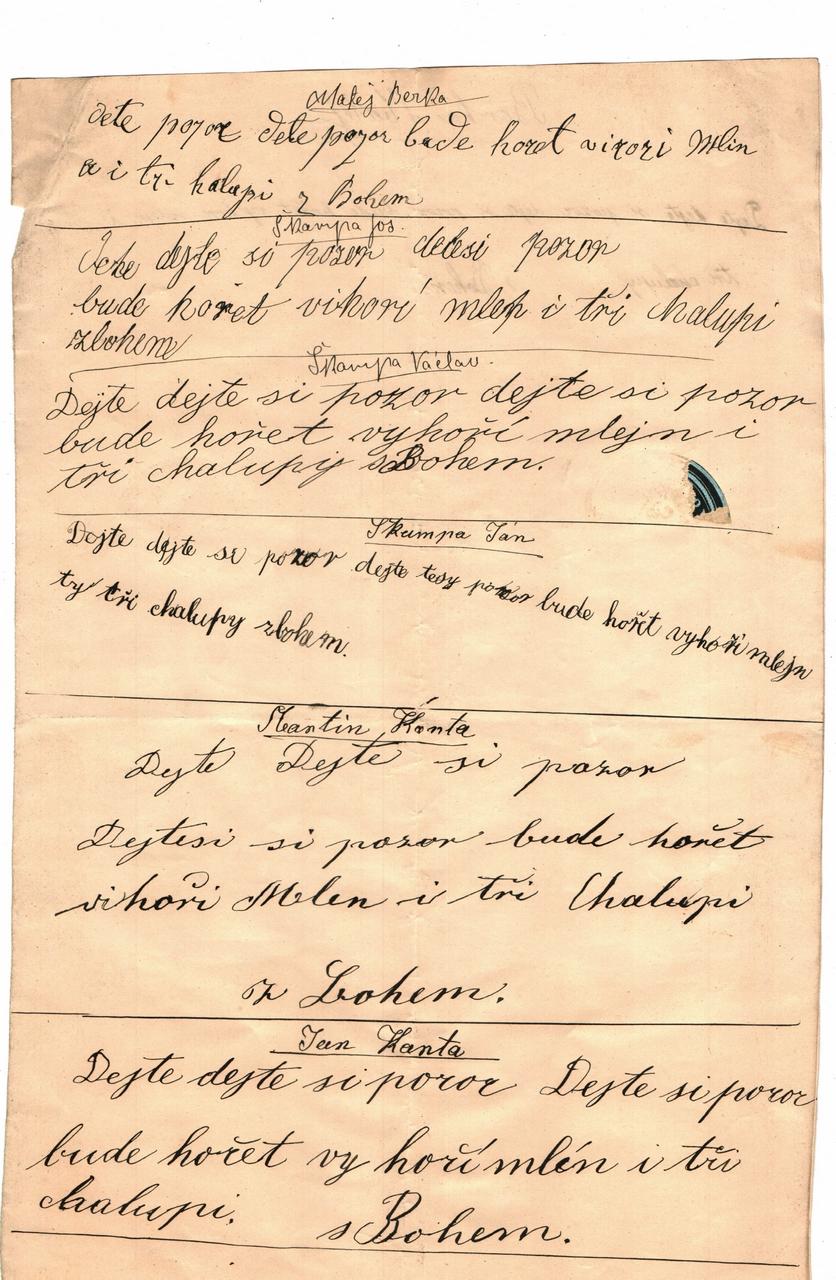 Matěj Berka
dete pozor dete pozor bude horet virori Mlin
a i tr. halupi z Bohem
Škampa Jos.
dejte si pozor decesi pozor
bude hořet vihorí mlen i tři chalupi
zbohem
Škampa Václav.
Dejte dejte si pozor dejte si pozor
bude hořet vyhoří mlejn i
tři chalupy s Bohem.
Škampa Ján
Dejte dejte si pozor dejte tesy pozor bude hořet vyhoři mlejn
ty tři chalupy zbohem.
Martin Kanta
Dejte Dejte si pozor
Dejtesi si pozor bude hořet
vihoři Mlen i tři Chalupi
z Bohem.
Jan Kanta
Dejte dejte si pozor Dejte si pozor
bude hořet vy hoří mlén i tři
chalupi.
s Bohem.